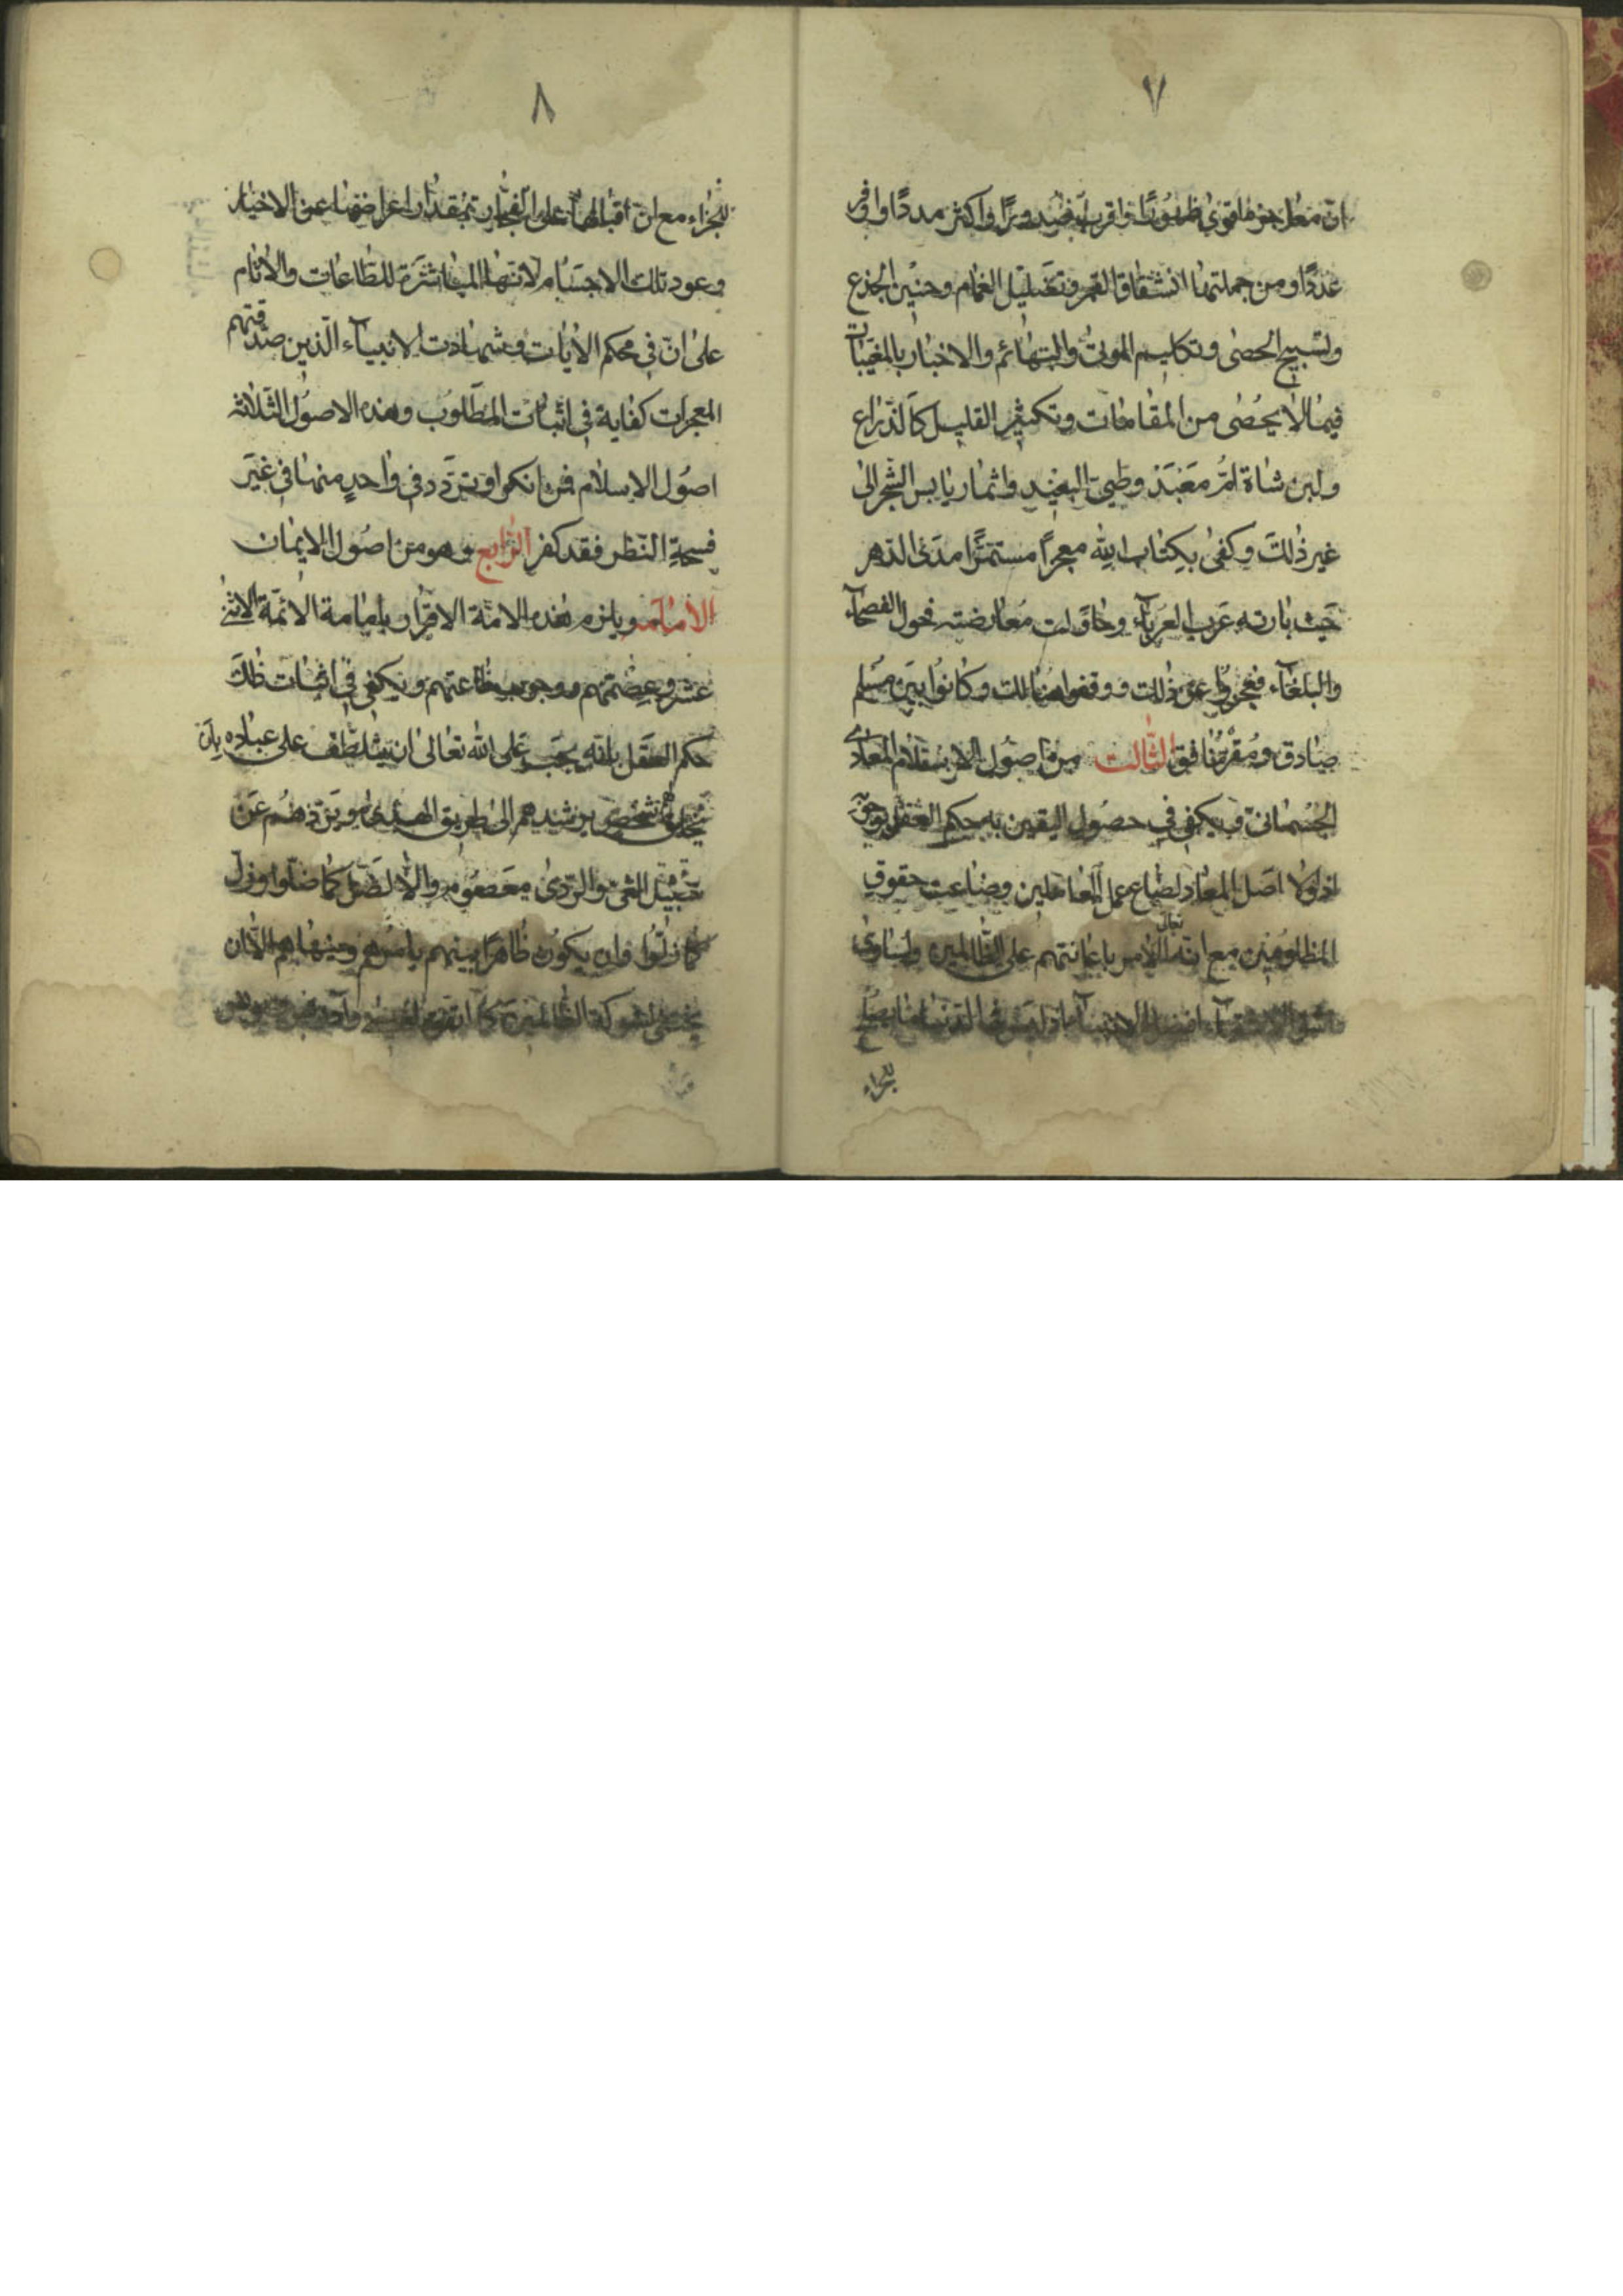 ٧
ان معجزه اقوى ظهورا واقرب صدورا واكثر مددا واوفر
عددا ومن جملتها انشقاق القمر وتظليل الغمام وحنين الجذع
وتسبيح الحصى وتكليم الموتى والبهائم والاخبار بالمغيبات
فيما لا يحصى من المقامات وتكثير القليل كالذراع
ولبن شاة ام معبد وطي البعيد واثمار يابس الشجر الى
غير ذلك وكفى بكتاب الله معجزا مستمرا مدى الدهر
حيث بارته عرب العرباء وحاولت معارضته فحول الفصحاء
والبلغاء فعجزوا عن ذلك ووقفوا هنالك وكانوا بين مسلم
صادق ومقر منافق الثالث من اصول الاسلام المعاد
الجسماني ويكفي في حصول اليقين به حكم العقل بوجوبه
اذ لولا اصل المعاد لضاع عمل العاملين وضاعت حقوق
المظلومين مع انه تعالى الامر باعانتهم على الظالمين ولساوى
الاشقياء افضل الانبياء اذ ليس في الدنيا ما يصلح
للجزاء
٨
للجزاء مع ان اقبالها على الفجار بمقدار اعراضها عن الاخيار
وعود تلك الاجسام لانها المباشرة للطاعات والاثام
على ان في محكم الايات وشهادت الانبياء الذين صدقتهم
المعجزات كفاية في اثبات المطلوب وهذه الاصول الثلاثة
اصول الاسلام فمن انكر او تردد في واحد منها في غير
فسحة النظر فقد كفر الرابع وهو من اصول الايمان
الامامه ويلزم هذه الامة الاقرار بامامة الائمة الاثني
عشر وعصمتهم ووجوب طاعتهم ويكفي في اثبات ذلك
حكم العقل بانه يجب على الله تعالى ان يتلطف على عباده بان
شخص يرشدهم الى طريق الهدى ويردهم عن
سبيل الغي والردى معصوم والا لضل كما ضلوا وزل
كما زلوا وان يكون ظاهرا بينهم يامرهم وينهاهم الا ان
يخشى شوكة الظالمين كما